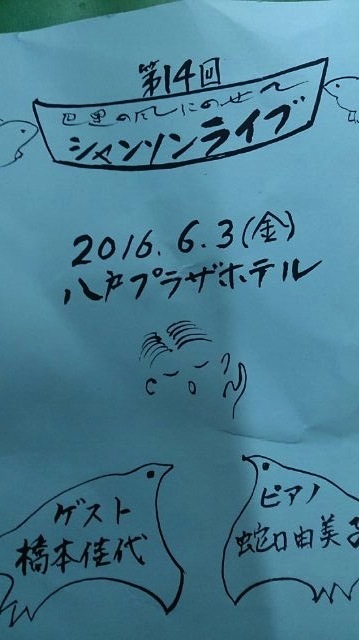 第14回
巴里の風にのせて
シャンソンライブ
2016.6.3(金)
八戸プラザホテル
ゲスト
橋本佳代
ピアノ
蛇口由美子